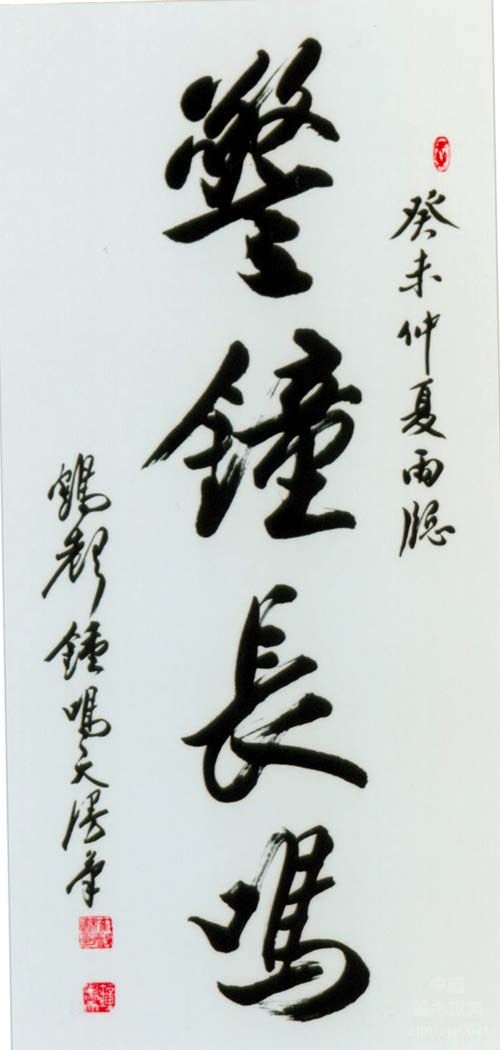 癸未仲夏雨牕
警鐘長鳴
鍾鳴天漫筆